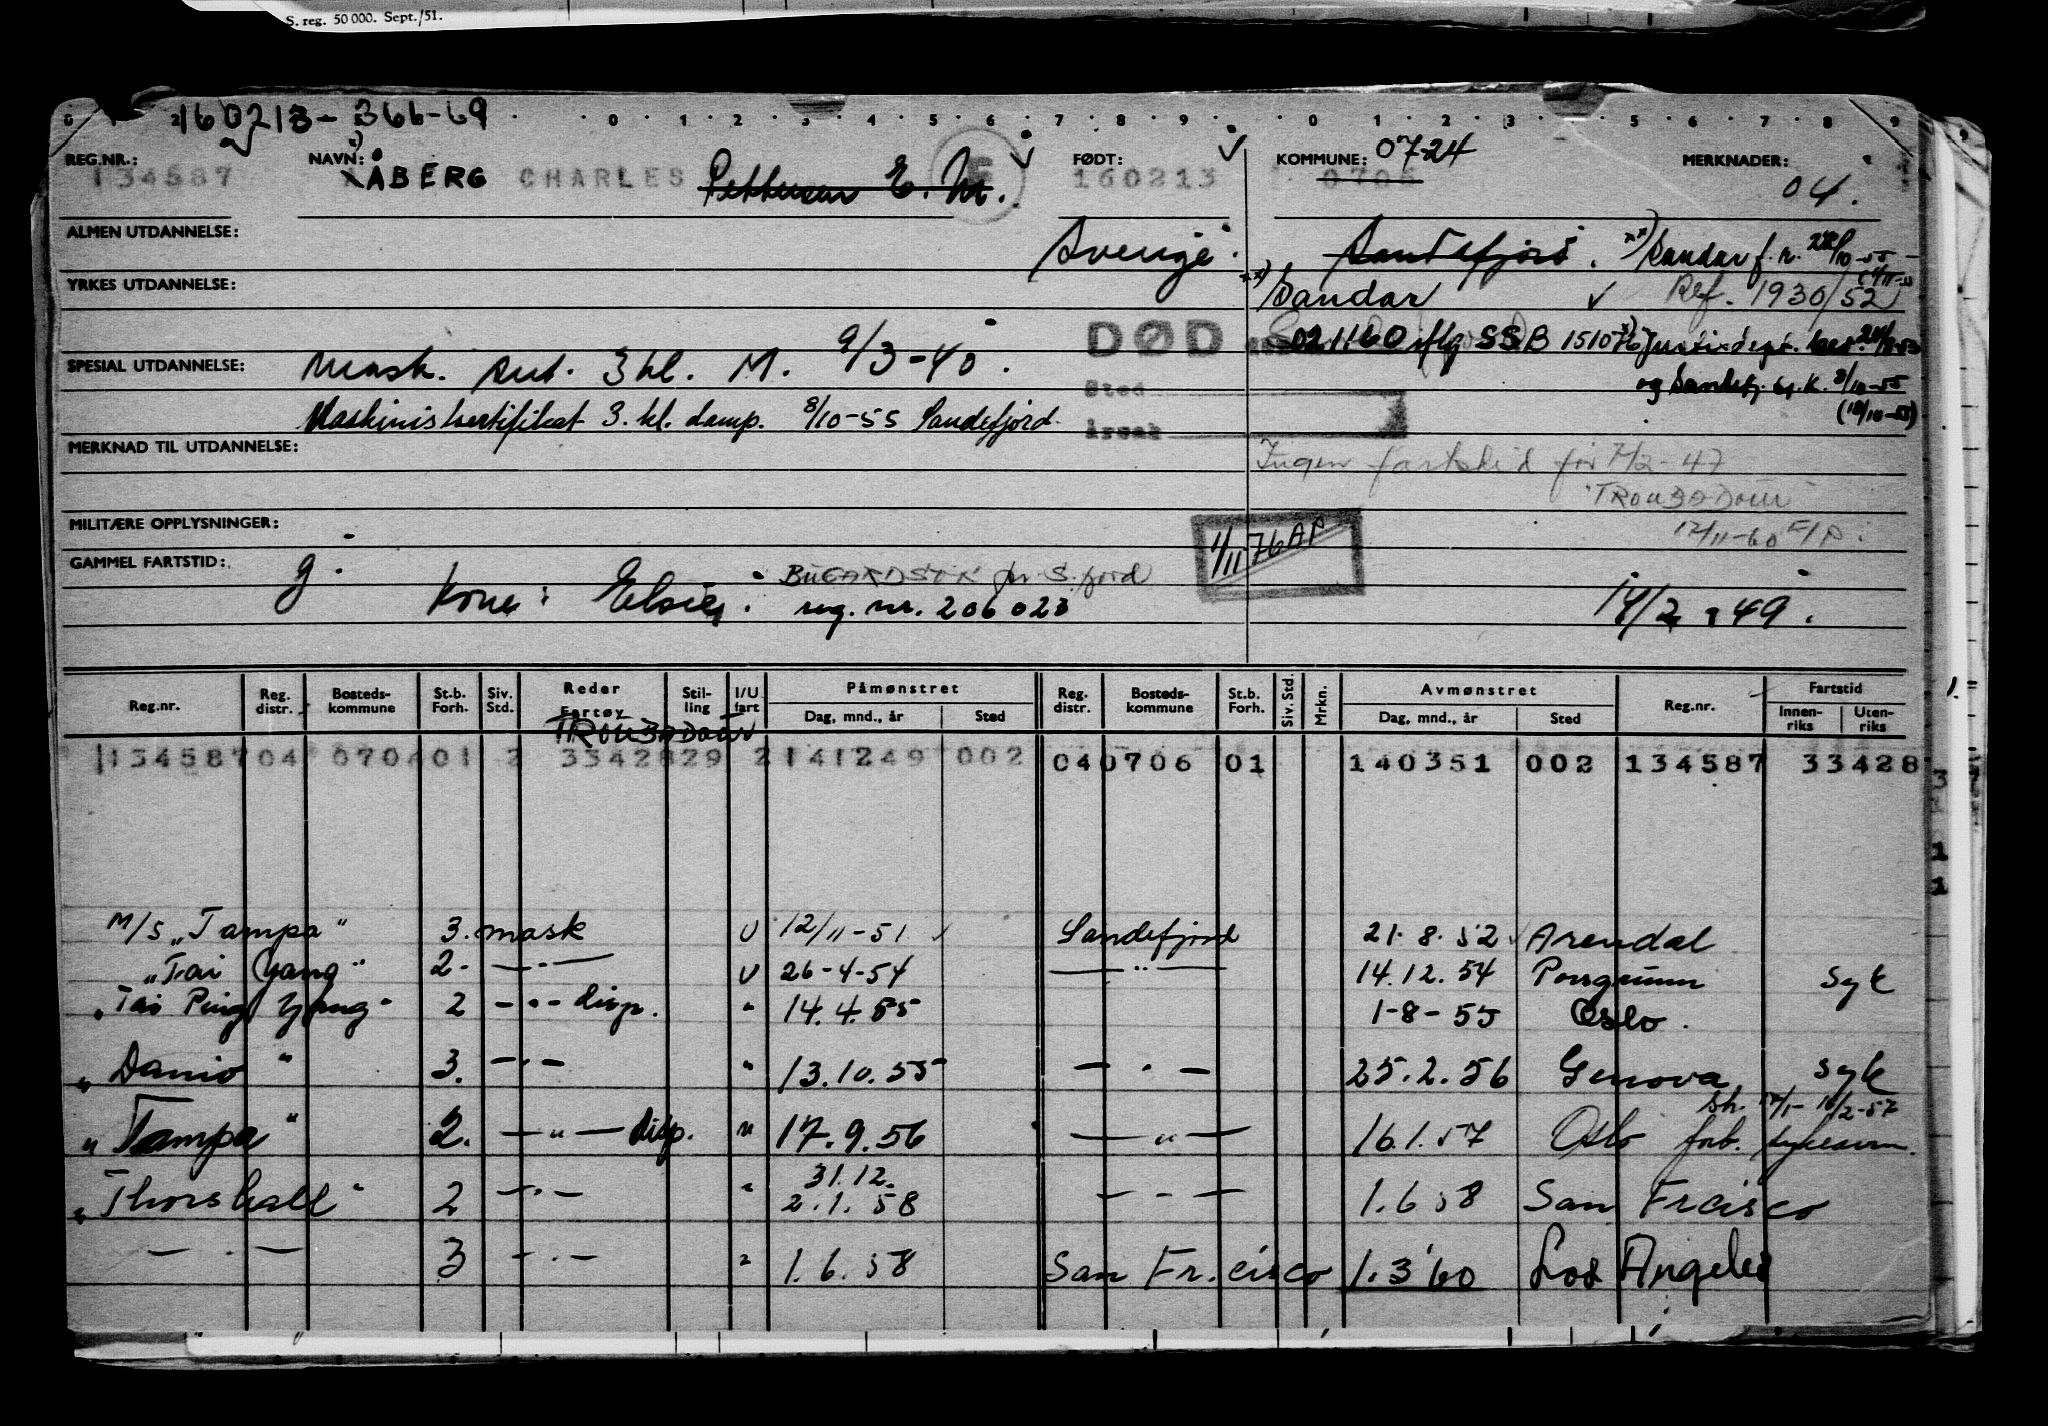 S. reg. 50 000. Sept./51.
160213-366-69
REG.NR.: NAVN: FØDT: KOMMUNE: 0724 MERKNADER:
134587 ÅBERG CHARLES Pettersen E. M. 160213 0706 04.
ALMEN UTDANNELSE:
Sverige. Sandefjord. xx) Sandar f. r.
YRKES UTDANNELSE: xx) Sandar Ref. 1930/52
DØD 021160 iflg SSB
SPESIAL UTDANNELSE: Mask. Ass. 3 kl. M. 9/3-40.
Sted og Sandefj. 8/10-55
Maskinistsertifikat 3. kl. damp. 8/10-55 Sandefjord. Årsak (10/10-55)
MERKNAD TIL UTDANNELSE: Ingen fartstid før 7/2-47
"TROUBADOUR"
MILITÆRE OPPLYSNINGER: 12/11-60
1/11 76 AP
GAMMEL FARTSTID: g. Kone: Elsie. BUGARDSVN pr S.fjord
reg. nr. 206023 14/2-49.
Reg.nr. Reg. distr. Bosteds-kommune St.b. Forh. Siv. Std. Reder Fartøy Stil-ling I/U fart Påmønstret Dag, mnd., år Sted Reg. distr. Bosteds-kommune St.b. Forh. Siv. Std. Mrkn. Avmønstret Dag, mnd., år Sted Reg.nr. Fartstid Innen-riks Uten-riks
TROUBADOUR
134587 04 0706 01 2 33428 29 2 141249 002 04 0706 01 140351 002 134587 33428
M/S "Tampa" 3. mask U 12/11-51 Sandefjord 21.8.52 Arendal
"Tai Yang" 2. — " — U 26-4-54 — " — 14.12.54 Porsgrunn Syk
"Tai Ping Yang" 2 — " — disp. " 14.4.55 1-8-55 Oslo.
"Danio" 3. — " — " 13.10.55 — " — 25.2.56 Genova Syk
"Tampa" 2. — " — disp. " 17.9.56 — " — 16.1.57 Oslo forb.
31.12.
"Thorshall" 2 — " — " 2.1.58 — " — 1.6.58 San Frcisco
— " — 3 — " — " 1.6.58 San Fr.cisco 1.3.60 Los Angeles